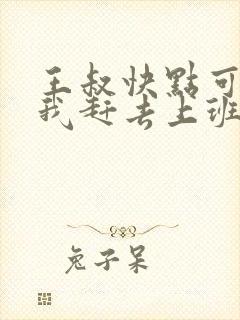 王叔快點可
我赶去上班
兔子呆